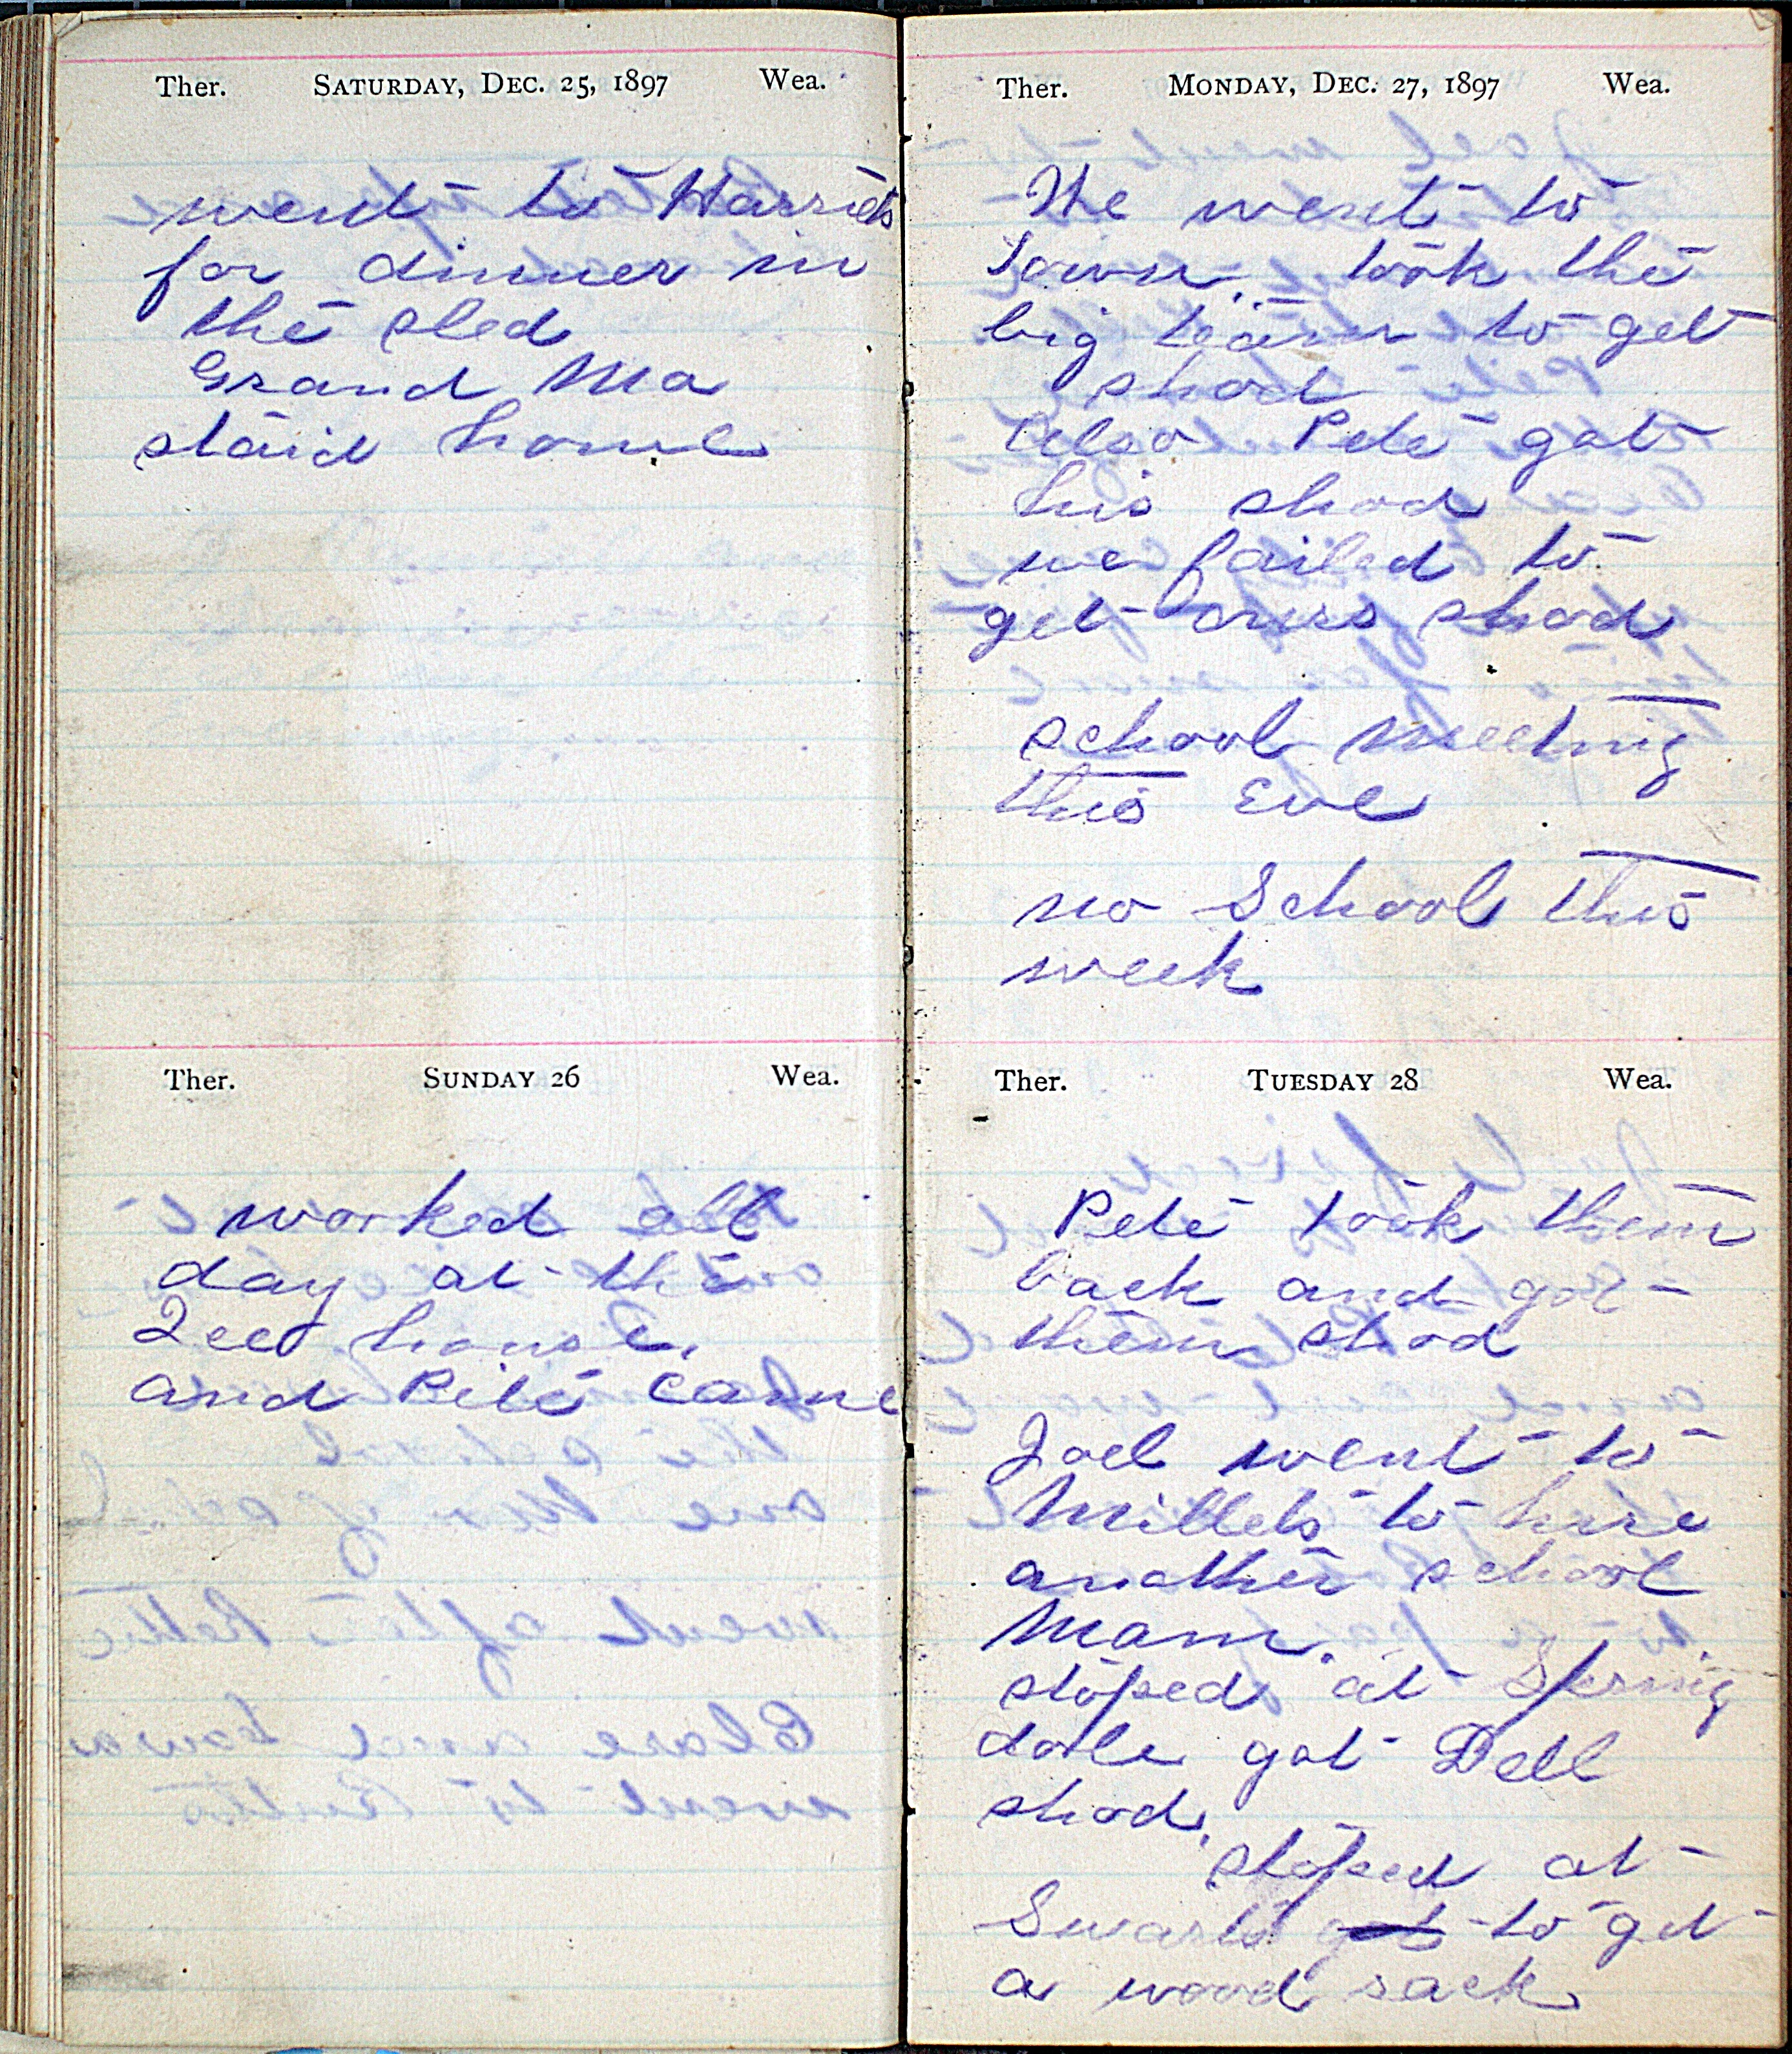 Ther. SATURDAY, DEC. 25, 1897 Wea.
went to Harriets
for dinner in
the sled
Grand Ma
staid home
Ther. SUNDAY 26 Wea.
worked all
day at the
Ice house.
and Pete came
Ther. MONDAY, DEC. 27, 1897 Wea.
We went to
Town. took the
big team to get
shod
Also Pete got
his shod
we failed to
get ours shod
school meeting
this Eve
no School this
week
Ther. TUESDAY 28 Wea.
Pete took them
back and got
them shod
Joel went to
Millets to hire
another school
Mam.
stoped at Spring
dale got Dell
shod.
stoped at
Swarts got to get
a wood sack